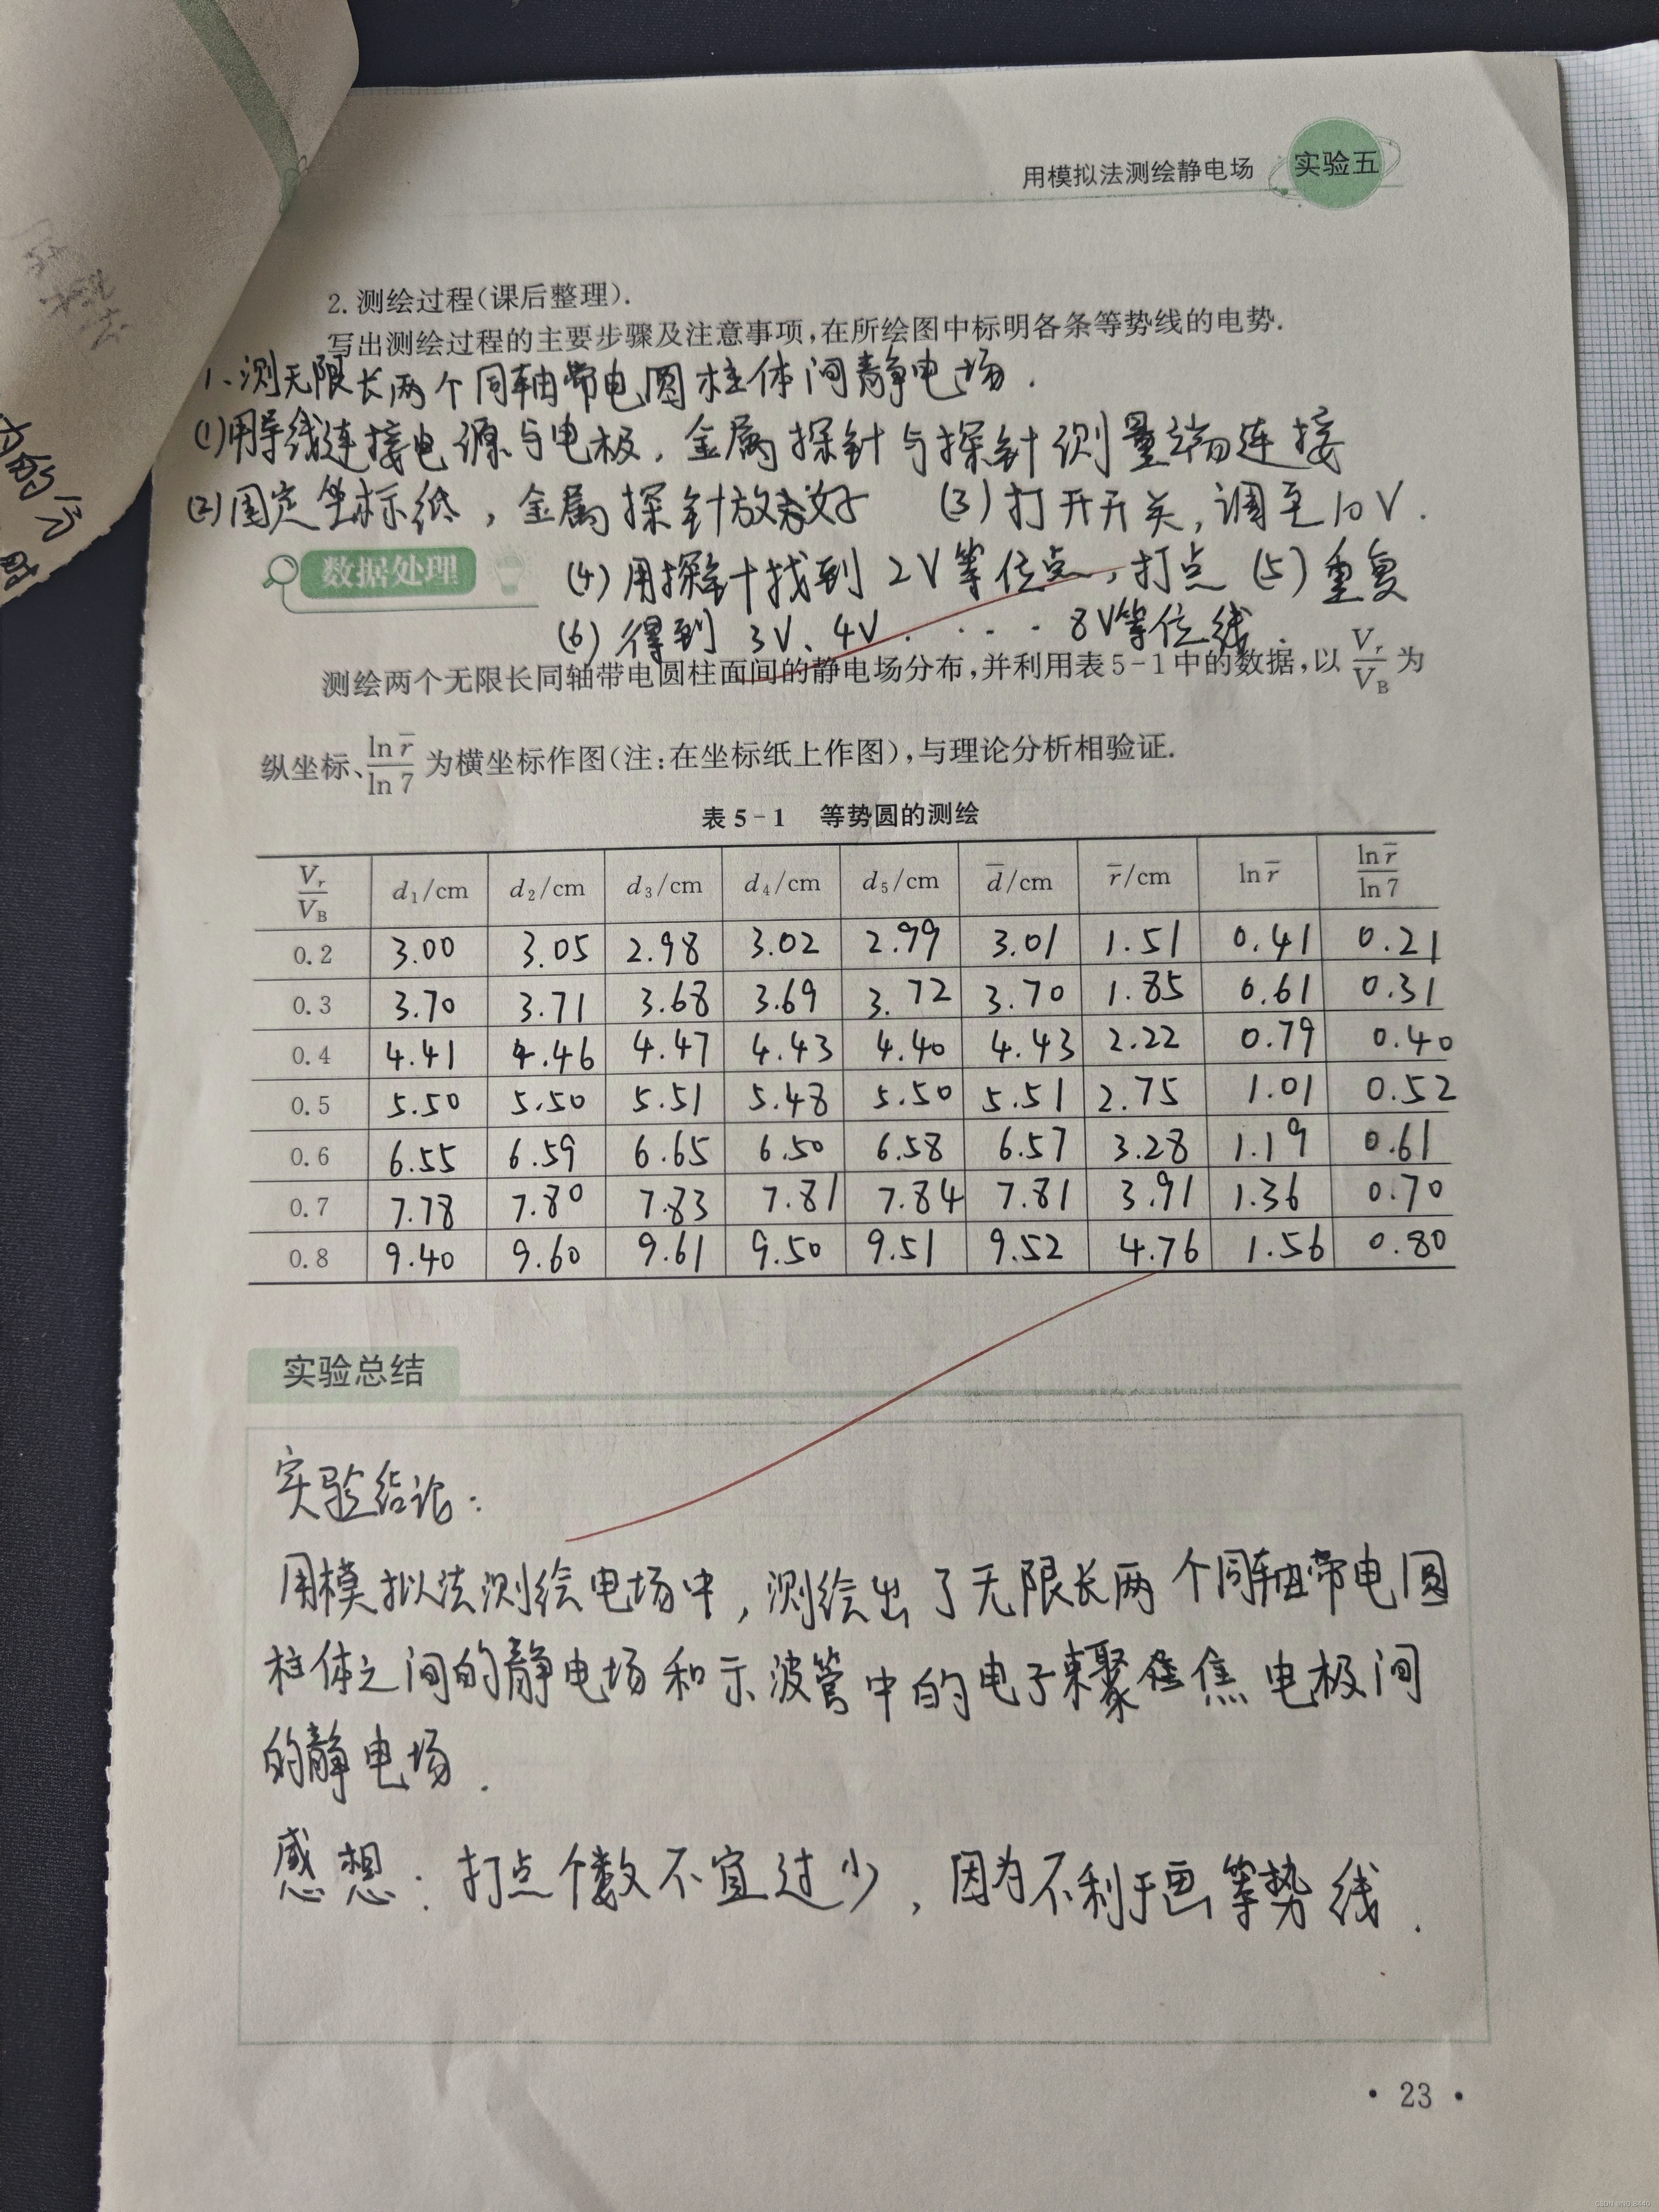 用模拟法测绘静电场 实验五
2. 测绘过程(课后整理).
写出测绘过程的主要步骤及注意事项,在所绘图中标明各条等势线的电势.
1、测无限长两个同轴带电圆柱体间静电场.
(1)用导线连接电源与电极,金属探针与探针测量端连接
(2)固定坐标纸,金属探针放好 (3)打开开关,调至10V.
数据处理 (4)用探针找到2V等位点,打点 (5)重复
(6)得到3V、4V.... 8V等位线.
测绘两个无限长同轴带电圆柱面间的静电场分布,并利用表5-1中的数据,以 V_r/V_B 为
纵坐标、ln r̄/ln 7 为横坐标作图(注:在坐标纸上作图),与理论分析相验证.
表 5-1 等势圆的测绘
V_r/V_B d₁/cm d₂/cm d₃/cm d₄/cm d₅/cm d̄/cm r̄/cm ln r̄ ln r̄/ln 7
0.2 3.00 3.05 2.98 3.02 2.99 3.01 1.51 0.41 0.21
0.3 3.70 3.71 3.68 3.69 3.72 3.70 1.85 0.61 0.31
0.4 4.41 4.46 4.47 4.43 4.40 4.43 2.22 0.79 0.40
0.5 5.50 5.50 5.51 5.48 5.50 5.51 2.75 1.01 0.52
0.6 6.55 6.59 6.65 6.50 6.58 6.57 3.28 1.19 0.61
0.7 7.78 7.80 7.83 7.81 7.84 7.81 3.91 1.36 0.70
0.8 9.40 9.60 9.61 9.50 9.51 9.52 4.76 1.56 0.80
实验总结
实验结论:
用模拟法测绘电场中,测绘出了无限长两个同轴带电圆
柱体之间的静电场和示波管中的电子束聚焦电极间
的静电场.
感想:打点个数不宜过少,因为不利于画等势线.
· 23 ·